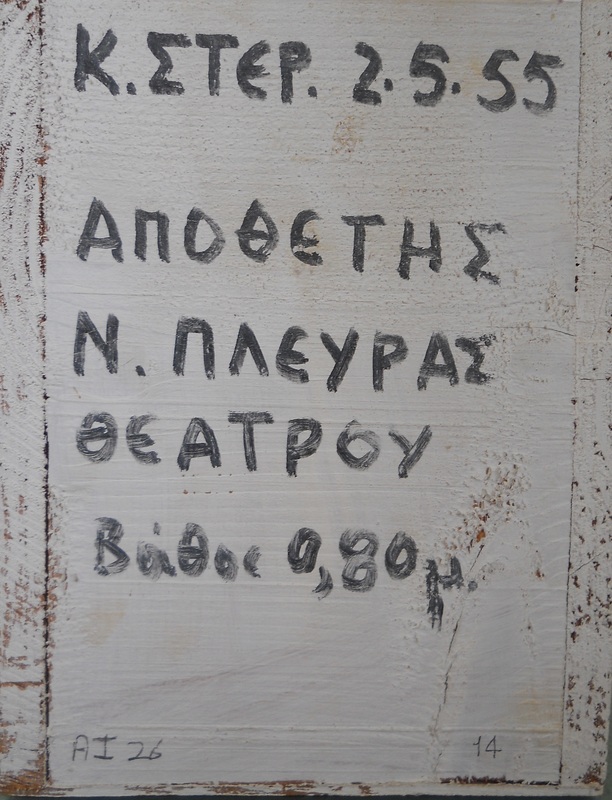 Κ.ΣΤΕΡ. 2.5.55
ΑΠΟΘΕΤΗΣ
Ν. ΠΛΕΥΡΑΣ
ΘΕΑΤΡΟΥ
Βάθος 0,80 μ.
ΑΙ 26 14